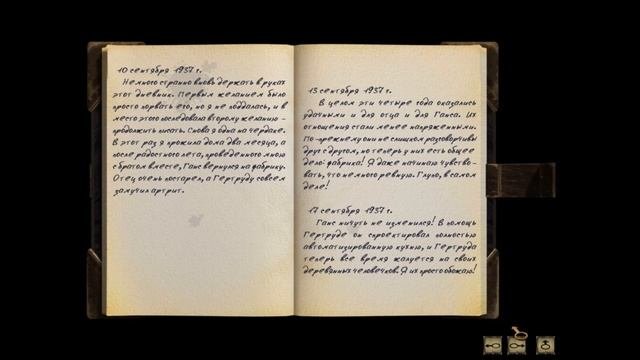 10 сентября 1937 г.
Немного странно вновь держать в руках
этот дневник. Первым желанием было
просто порвать его, но я не поддалась, и в
место этого последовала второму желанию -
продолжить писать. Снова я одна на чердаке.
В этот раз я прожила дома два месяца, а
после радостного лета, проведенного мною
с братом вместе, Ганс вернулся на фабрику.
Отец очень постарел, а Гертруду совсем
замучил артрит.
13 сентября 1937 г.
В целом эти четыре года оказались
удачными и для отца и для Ганса. Их
отношения стали менее напряженными.
По-прежнему они не слишком разговорчивы
друг с другом, но теперь у них есть общее
дело: фабрика! Я даже начинаю чувство-
вать, что немного ревную. Глупо, в самом
деле!
17 сентября 1937 г.
Ганс ничуть не изменился! В помощь
Гертруде он спроектировал полностью
автоматизированную кухню, и Гертруда
теперь все время жалуется на своих
деревянных человечков. Я их просто обожаю!